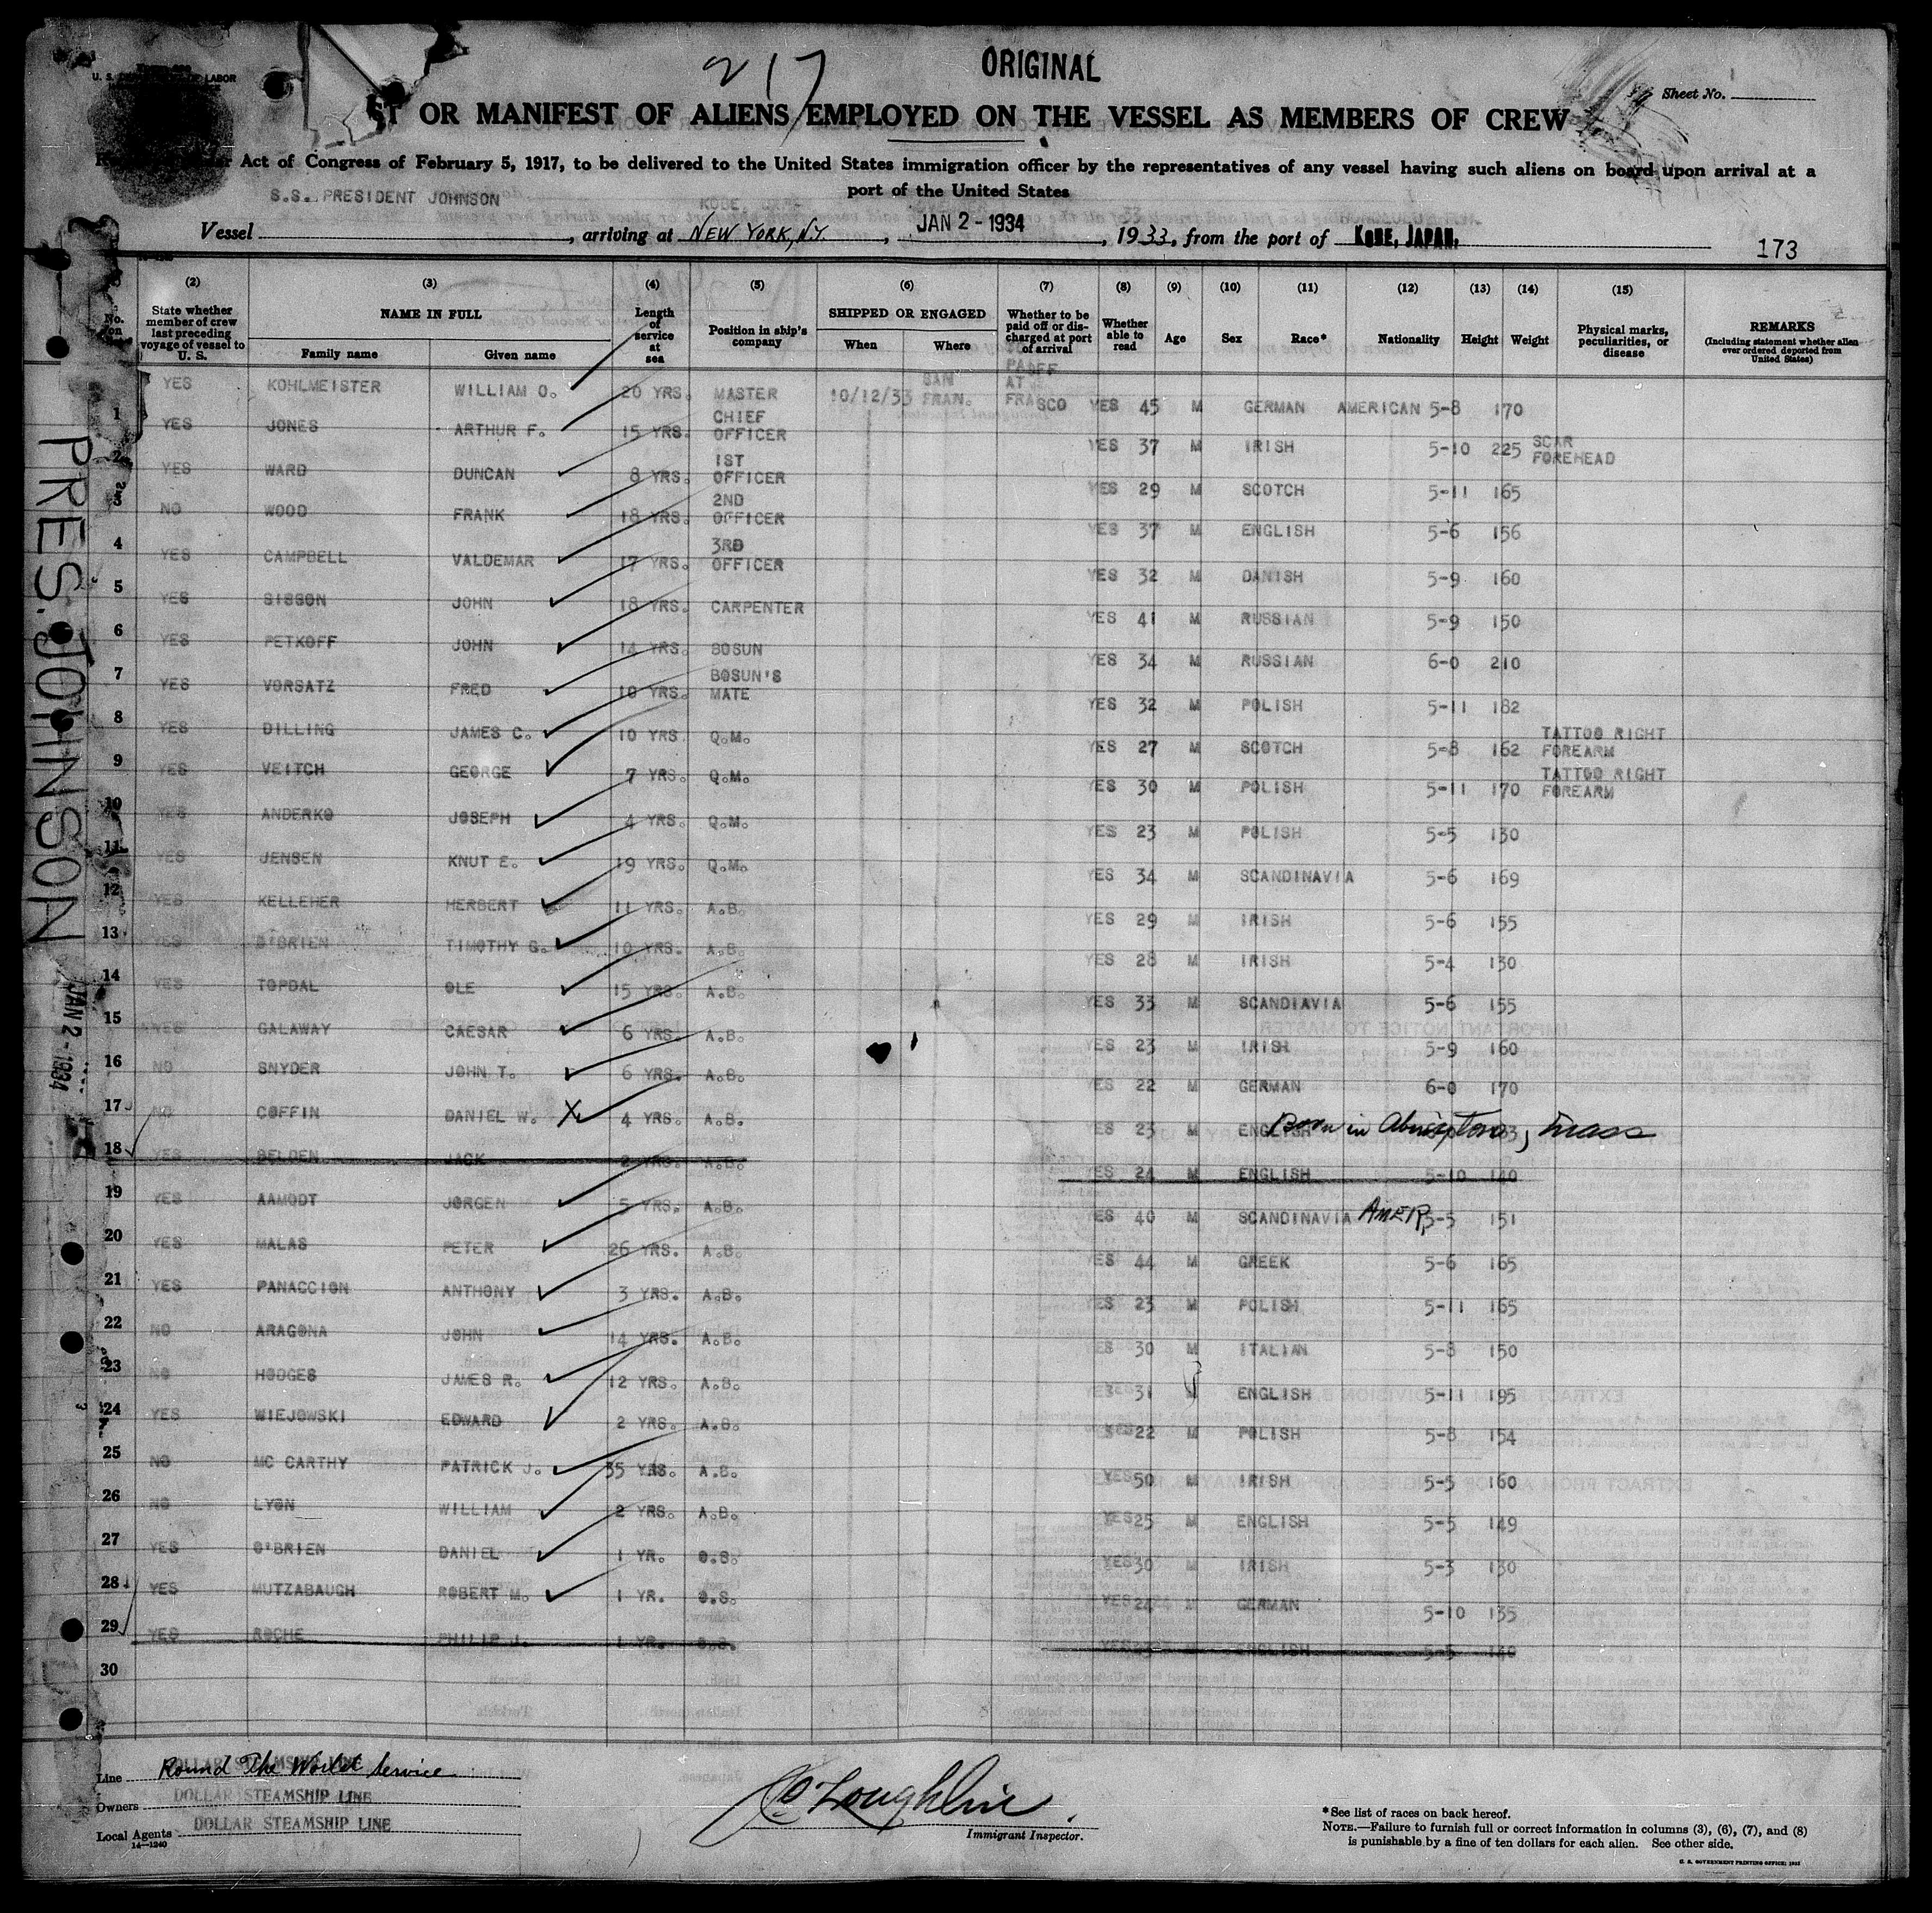 217
ORIGINAL
U. S. DEPARTMENT OF LABOR
Sheet No.
ST OR MANIFEST OF ALIENS EMPLOYED ON THE VESSEL AS MEMBERS OF CREW
Act of Congress of February 5, 1917, to be delivered to the United States immigration officer by the representatives of any vessel having such aliens on board upon arrival at a
port of the United States
S.S. PRESIDENT JOHNSON
Vessel , arriving at NEW YORK, N.Y. , JAN 2 - 1934 , 1933, from the port of KOBE, JAPAN.
173
(2) (3) (4) (5) (6) (7) (8) (9) (10) (11) (12) (13) (14) (15)
No. on State whether member of crew last preceding voyage of vessel to U. S. NAME IN FULL Family name Given name Length of service at sea Position in ship's company SHIPPED OR ENGAGED When Where Whether to be paid off or discharged at port of arrival Whether able to read Age Sex Race* Nationality Height Weight Physical marks, peculiarities, or disease REMARKS (Including statement whether alien ever ordered deported from United States)
YES KOHLMEISTER WILLIAM O. 20 YRS. MASTER 10/12/33 SAN FRAN. PAOFF AT FRASCO YES 45 M GERMAN AMERICAN 5-8 170
1 YES JONES ARTHUR F. 15 YRS. CHIEF OFFICER YES 37 M IRISH 5-10 225 SCAR FOREHEAD
2 YES WARD DUNCAN 8 YRS. 1ST OFFICER YES 29 M SCOTCH 5-11 165
3 NO WOOD FRANK 18 YRS. 2ND OFFICER YES 37 M ENGLISH 5-6 156
4 YES CAMPBELL VALDEMAR 17 YRS. 3RD OFFICER YES 32 M DANISH 5-9 160
5 YES SISSON JOHN 18 YRS. CARPENTER YES 41 M RUSSIAN 5-9 150
6 YES PETKOFF JOHN 14 YRS. BOSUN YES 34 M RUSSIAN 6-0 210
7 YES VORSATZ FRED 10 YRS. BOSUN'S MATE YES 32 M POLISH 5-11 182
8 YES DILLING JAMES C. 10 YRS Q.M. YES 27 M SCOTCH 5-8 162 TATTOO RIGHT FOREARM
9 YES VEITCH GEORGE 7 YRS. Q.M. YES 30 M POLISH 5-11 170 TATTOO RIGHT FOREARM
10 YES ANDERKO JOSEPH 4 YRS. Q.M. YES 23 M POLISH 5-5 130
11 YES JENSEN KNUT E. 19 YRS. Q.M. YES 34 M SCANDINAVIA 5-6 169
12 YES KELLEHER HERBERT 11 YRS. A.B. YES 29 M IRISH 5-6 155
13 YES O'BRIEN TIMOTHY G. 10 YRS. A.B. YES 28 M IRISH 5-4 130
14 YES TOPDAL OLE 15 YRS. A.B. YES 33 M SCANDIAVIA 5-6 155
15 YES GALAWAY CAESAR 6 YRS. A.B. YES 23 M IRISH 5-9 160
16 NO SNYDER JOHN T. 6 YRS. A.B. YES 22 M GERMAN 6-0 170
17 NO COFFIN DANIEL W. X 4 YRS. A.B. YES 23 M ENGLISH Born in Abington, Mass
18 YES BELDEN JACK 2 YRS. A.B. YES 24 M ENGLISH 5-10 140
19 YES AAMODT JORGEN 5 YRS. A.B. YES 40 M SCANDINAVIA AMER. 5-5 151
20 YES MALAS PETER 26 YRS. A.B. YES 44 M GREEK 5-6 165
21 YES PANACCION ANTHONY 3 YRS. A.B. YES 23 M POLISH 5-11 165
22 NO ARAGONA JOHN 14 YRS. A.B. YES 30 M ITALIAN 5-8 150
23 NO HODGES JAMES R. 12 YRS. A.B. YES 31 ENGLISH 5-11 195
24 YES WIEJOWSKI EDWARD 2 YRS. A.B. YES 22 M POLISH 5-8 154
25 NO MC CARTHY PATRICK J. 35 YRS. A.B. YES 50 M IRISH 5-5 160
26 NO LYON WILLIAM 2 YRS. A.B. YES 25 M ENGLISH 5-5 149
27 YES O'BRIEN DANIEL 1 YR. O.S. YES 30 M IRISH 5-3 130
28 YES MUTZABAUGH ROBERT M. 1 YR. O.S. YES 24 M GERMAN 5-10 135
29 YES ROCHE PHILIP J. 1 YR. O.S. YES M ENGLISH 5-5 140
30
PRES. JOHNSON
JAN 2 - 1934
Line Round The World Service
DOLLAR STEAMSHIP LINE
Owners DOLLAR STEAMSHIP LINE
Local Agents DOLLAR STEAMSHIP LINE
14—1240
Immigrant Inspector.
*See list of races on back hereof.
NOTE.—Failure to furnish full or correct information in columns (3), (6), (7), and (8)
is punishable by a fine of ten dollars for each alien. See other side.
U. S. GOVERNMENT PRINTING OFFICE: